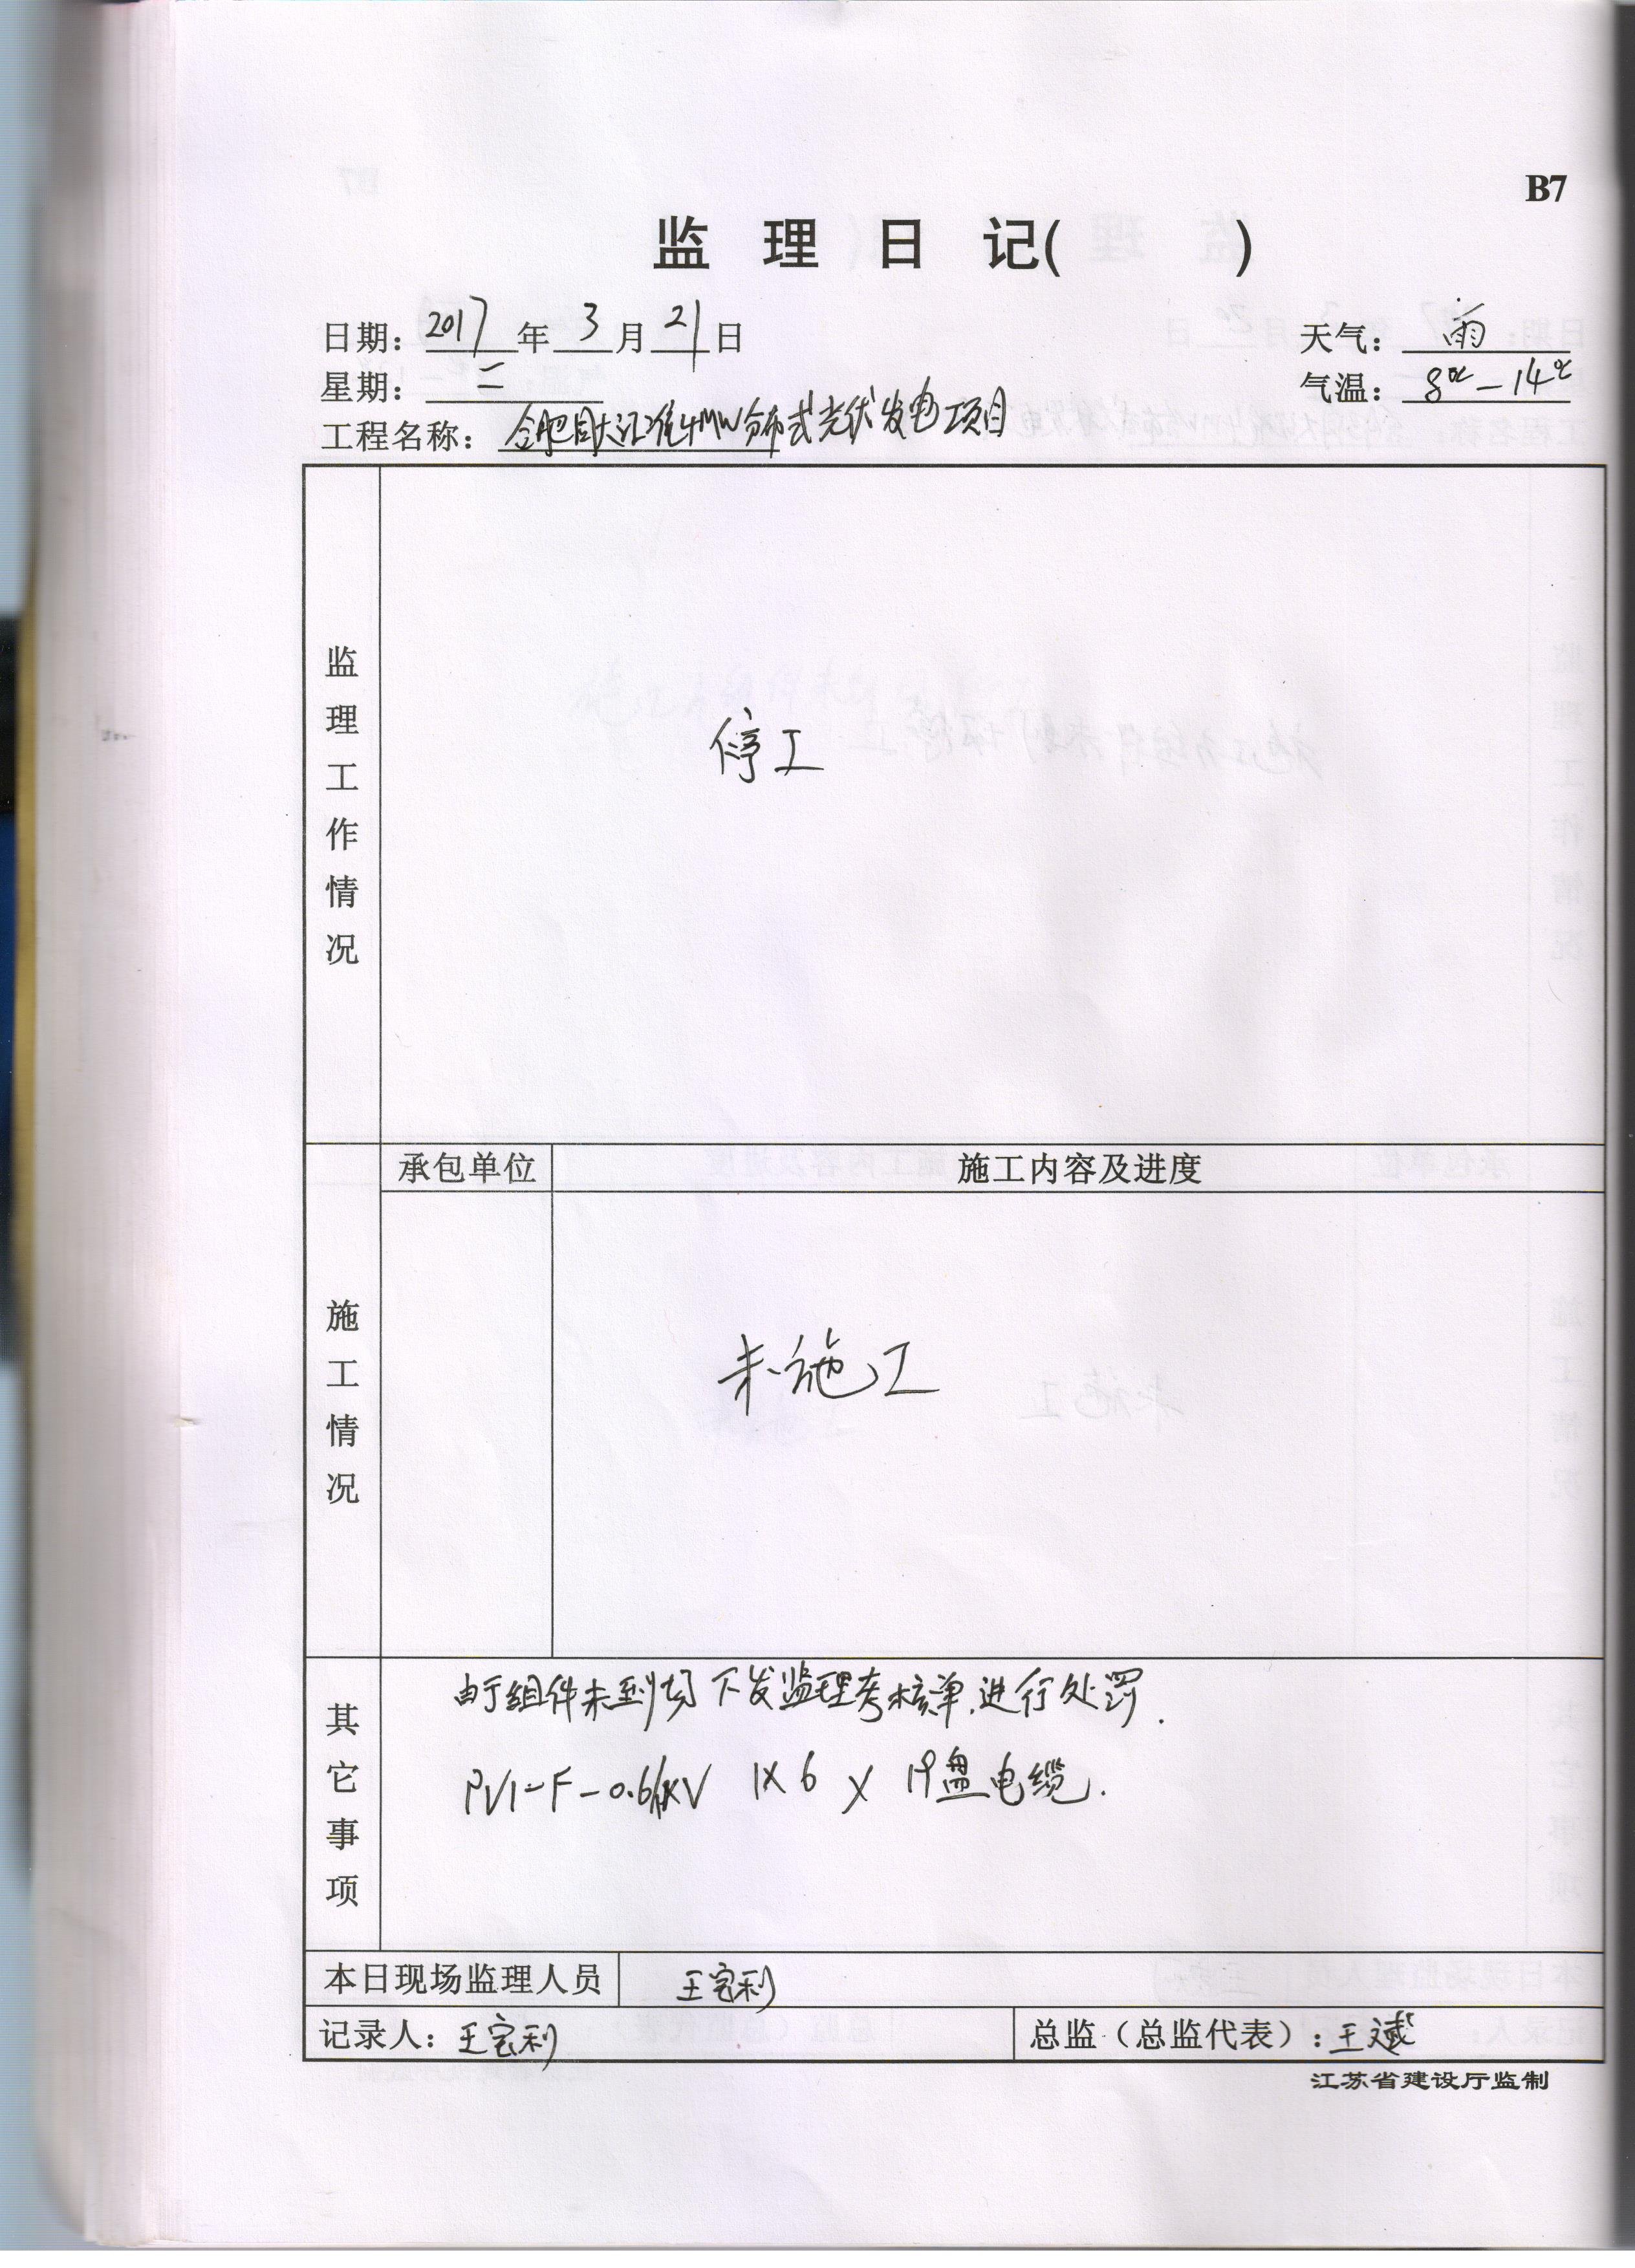 B7
监 理 日 记( )
日期：2017年3月21日 天气：雨
星期：二 气温：8℃-14℃
工程名称：合肥大江淮4MW分布式光伏发电项目
监理工作情况
停工
承包单位 施工内容及进度
施工情况
未施工
其它事项
由于组件未到场下发监理考核单,进行处罚.
PV1-F-0.6/1KV 1X6 X 19盘电缆.
本日现场监理人员 王宝利
记录人：王宝利 总监（总监代表）：王斌
江苏省建设厅监制